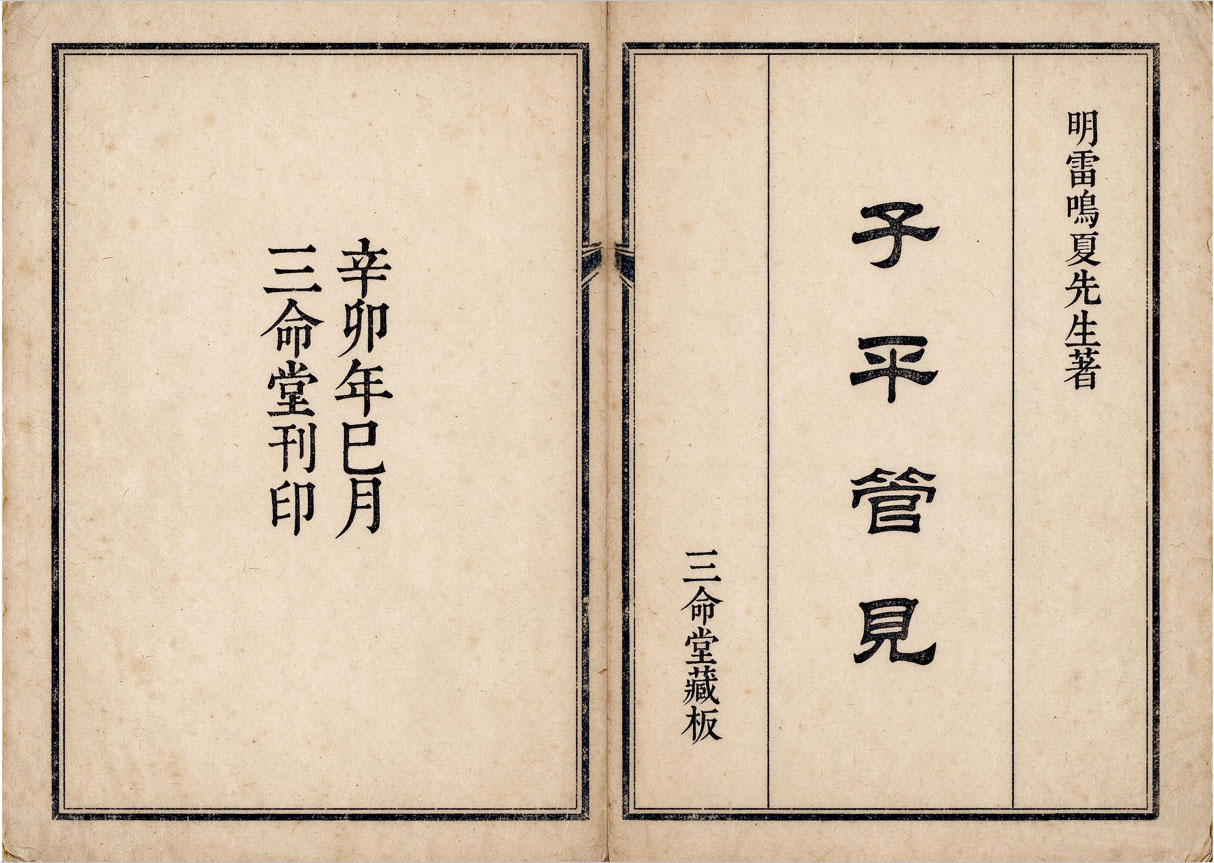 明雷鳴夏先生著
子平管見
三命堂藏板
辛卯年巳月
三命堂刊印